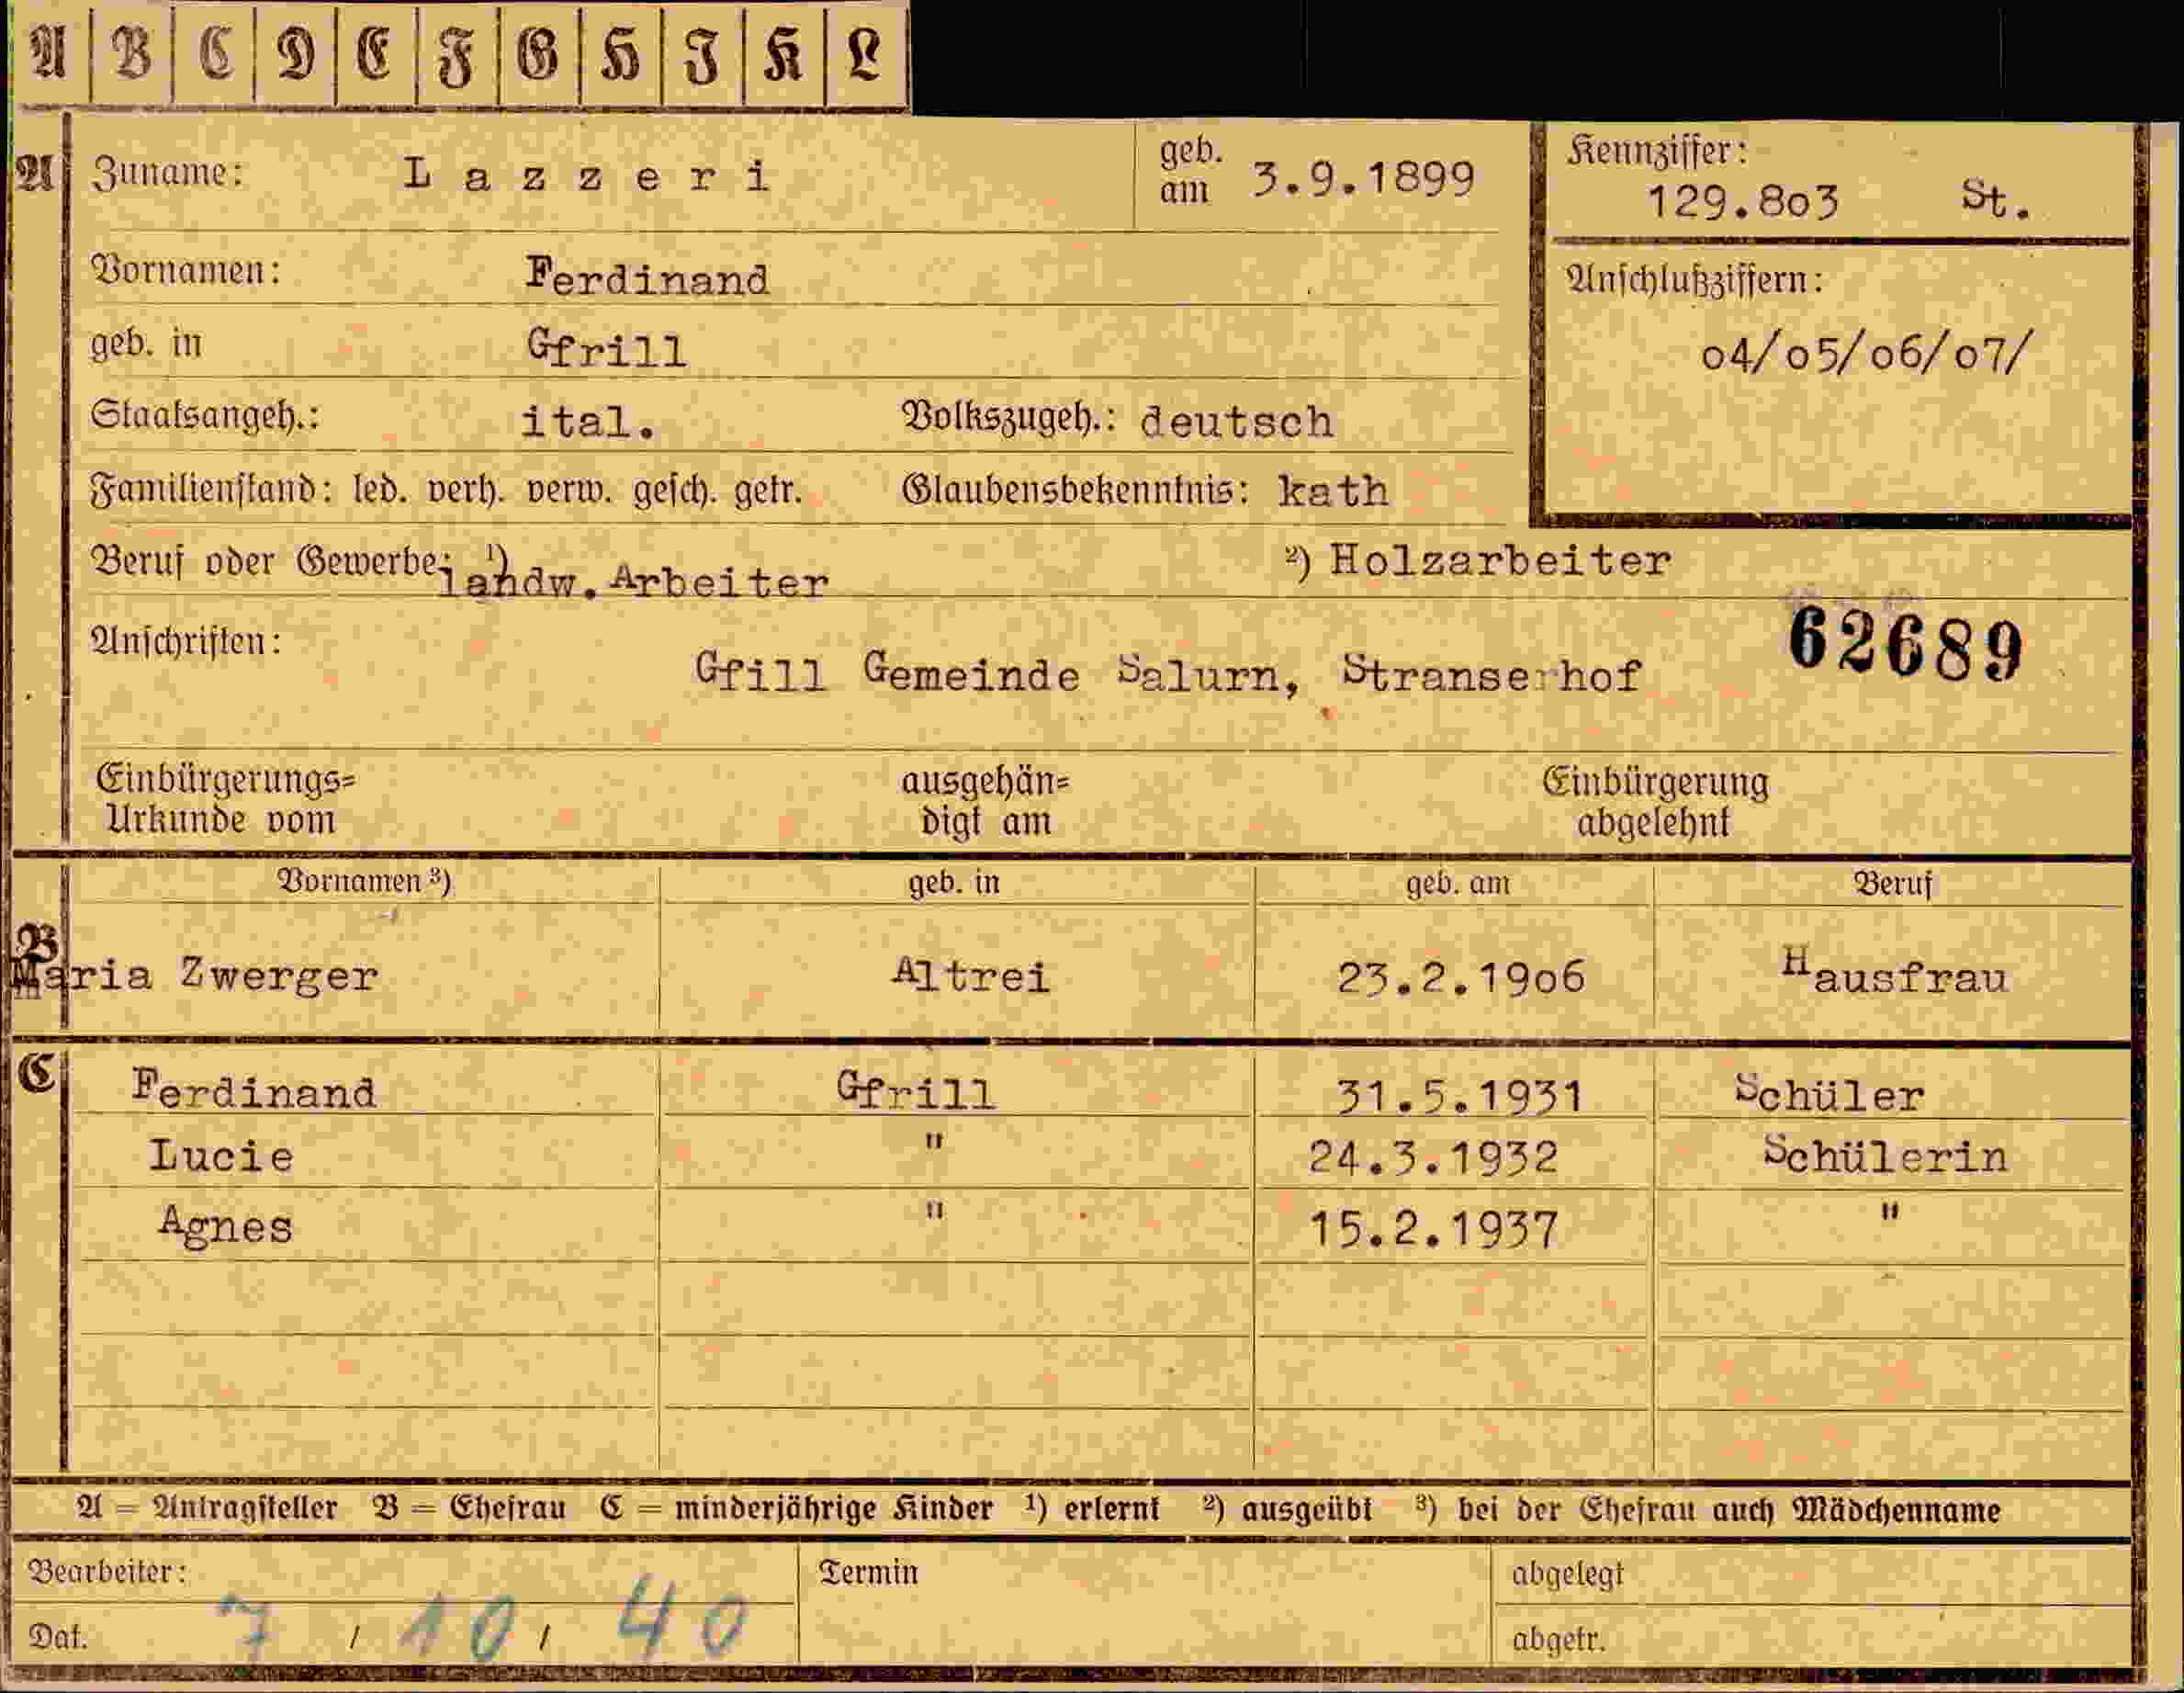 A B C D E F G H J K L
A Zuname: Lazzeri geb. am 3.9.1899 Kennziffer: 129.8o3 St.
Vornamen: Ferdinand Anschlußziffern:
geb. in Gfrill o4/o5/o6/o7/
Staatsangeh.: ital. Volkszugeh.: deutsch
Familienstand: led. verh. verw. gesch. getr. Glaubensbekenntnis: kath
Beruf oder Gewerbe: ¹) landw. Arbeiter ²) Holzarbeiter
62689
Anschriften: Gfill Gemeinde Salurn, Stranserhof
Einbürgerungs= ausgehän= Einbürgerung
Urkunde vom digt am abgelehnt
Vornamen ³) geb. in geb. am Beruf
B Maria Zwerger Altrei 23.2.19o6 Hausfrau
C Ferdinand Gfrill 31.5.1931 Schüler
Lucie " 24.3.1932 Schülerin
Agnes " 15.2.1937 "
A = Antragsteller B = Ehefrau C = minderjährige Kinder ¹) erlernt ²) ausgeübt ³) bei der Ehefrau auch Mädchenname
Bearbeiter: Termin abgelegt
Dat. 7 / 10 / 40 abgetr.